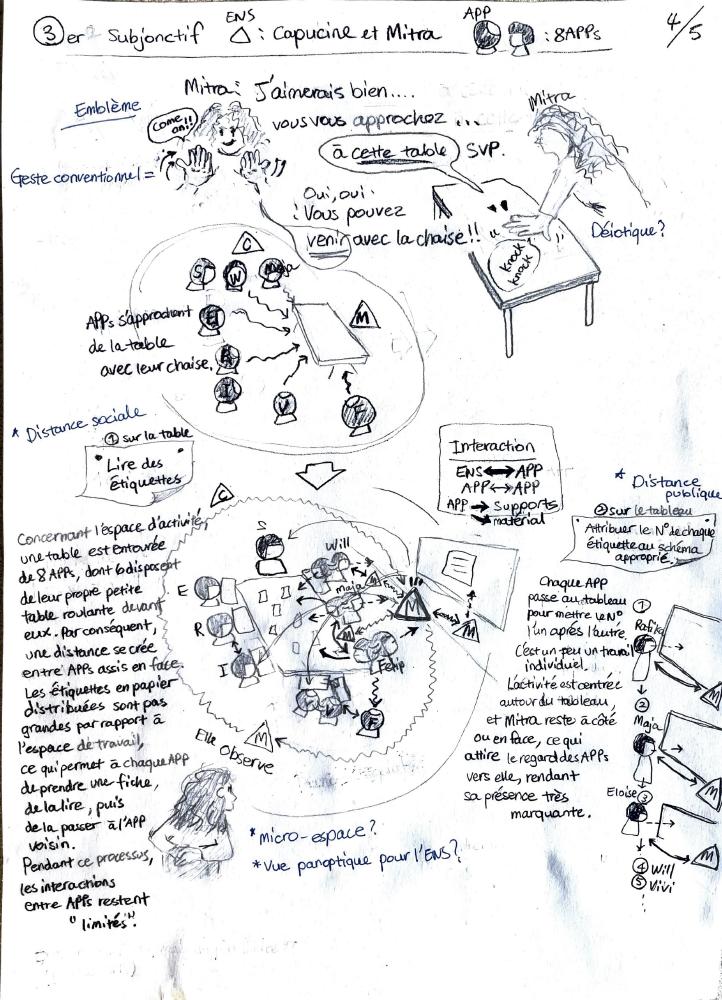 ③er Subjonctif
ENS
△ : Capucine et Mitra
APP
: 8APPs
4/5
Emblème
Geste conventionnel =
come on!!
Mitra: J'aimerais bien....
vous vous approchez ...
à cette table SVP.
Mitra
Oui, oui.
: Vous pouvez
venir avec la chaise!!
knock
knock
Déiotique?
C
S
W
Maja
E
R
I
V
F
M
APPs s'approchent
de la table
avec leur chaise.
* Distance sociale
① sur la table
Lire des
étiquettes
Interaction
ENS ↔ APP
APP ↔ APP
APP → supports
↘ matérial
* Distance
publique
② sur le tableau
Attribuer le N° de chaque
étiquette au schéma
approprié.
Concernant l'espace d'activité,
une table est entourée
de 8 APPs, dont 6 disposent
de leur propre petite
table roulante devant
eux. Par conséquent,
une distance se crée
entre APPs assis en face.
Les étiquettes en papier
distribuées sont pas
grandes par rapport à
l'espace de travail,
ce qui permet à chaque APP
de prendre une fiche,
de la lire, puis
de la passer à l'APP
voisin.
Pendant ce processus,
les interactions
entre APPs restent
"limités".
C
S
Will
Maja
E
R
I
M
M
M
M
Felip
F
Elle observe
M
* Micro-espace?
* Vue panoptique pour l'ENS?
Chaque APP
passe au tableau
pour mettre le N°
l'un après l'autre.
C'est un peu un travail
individuel.
L'activité est centrée
autour du tableau,
et Mitra reste à côté
ou en face, ce qui
attire le regard des APPs
vers elle, rendant
sa présence très
marquante.
①
M
②
Maja
M
Eloise ③
M
④ Will
⑤ Vivi